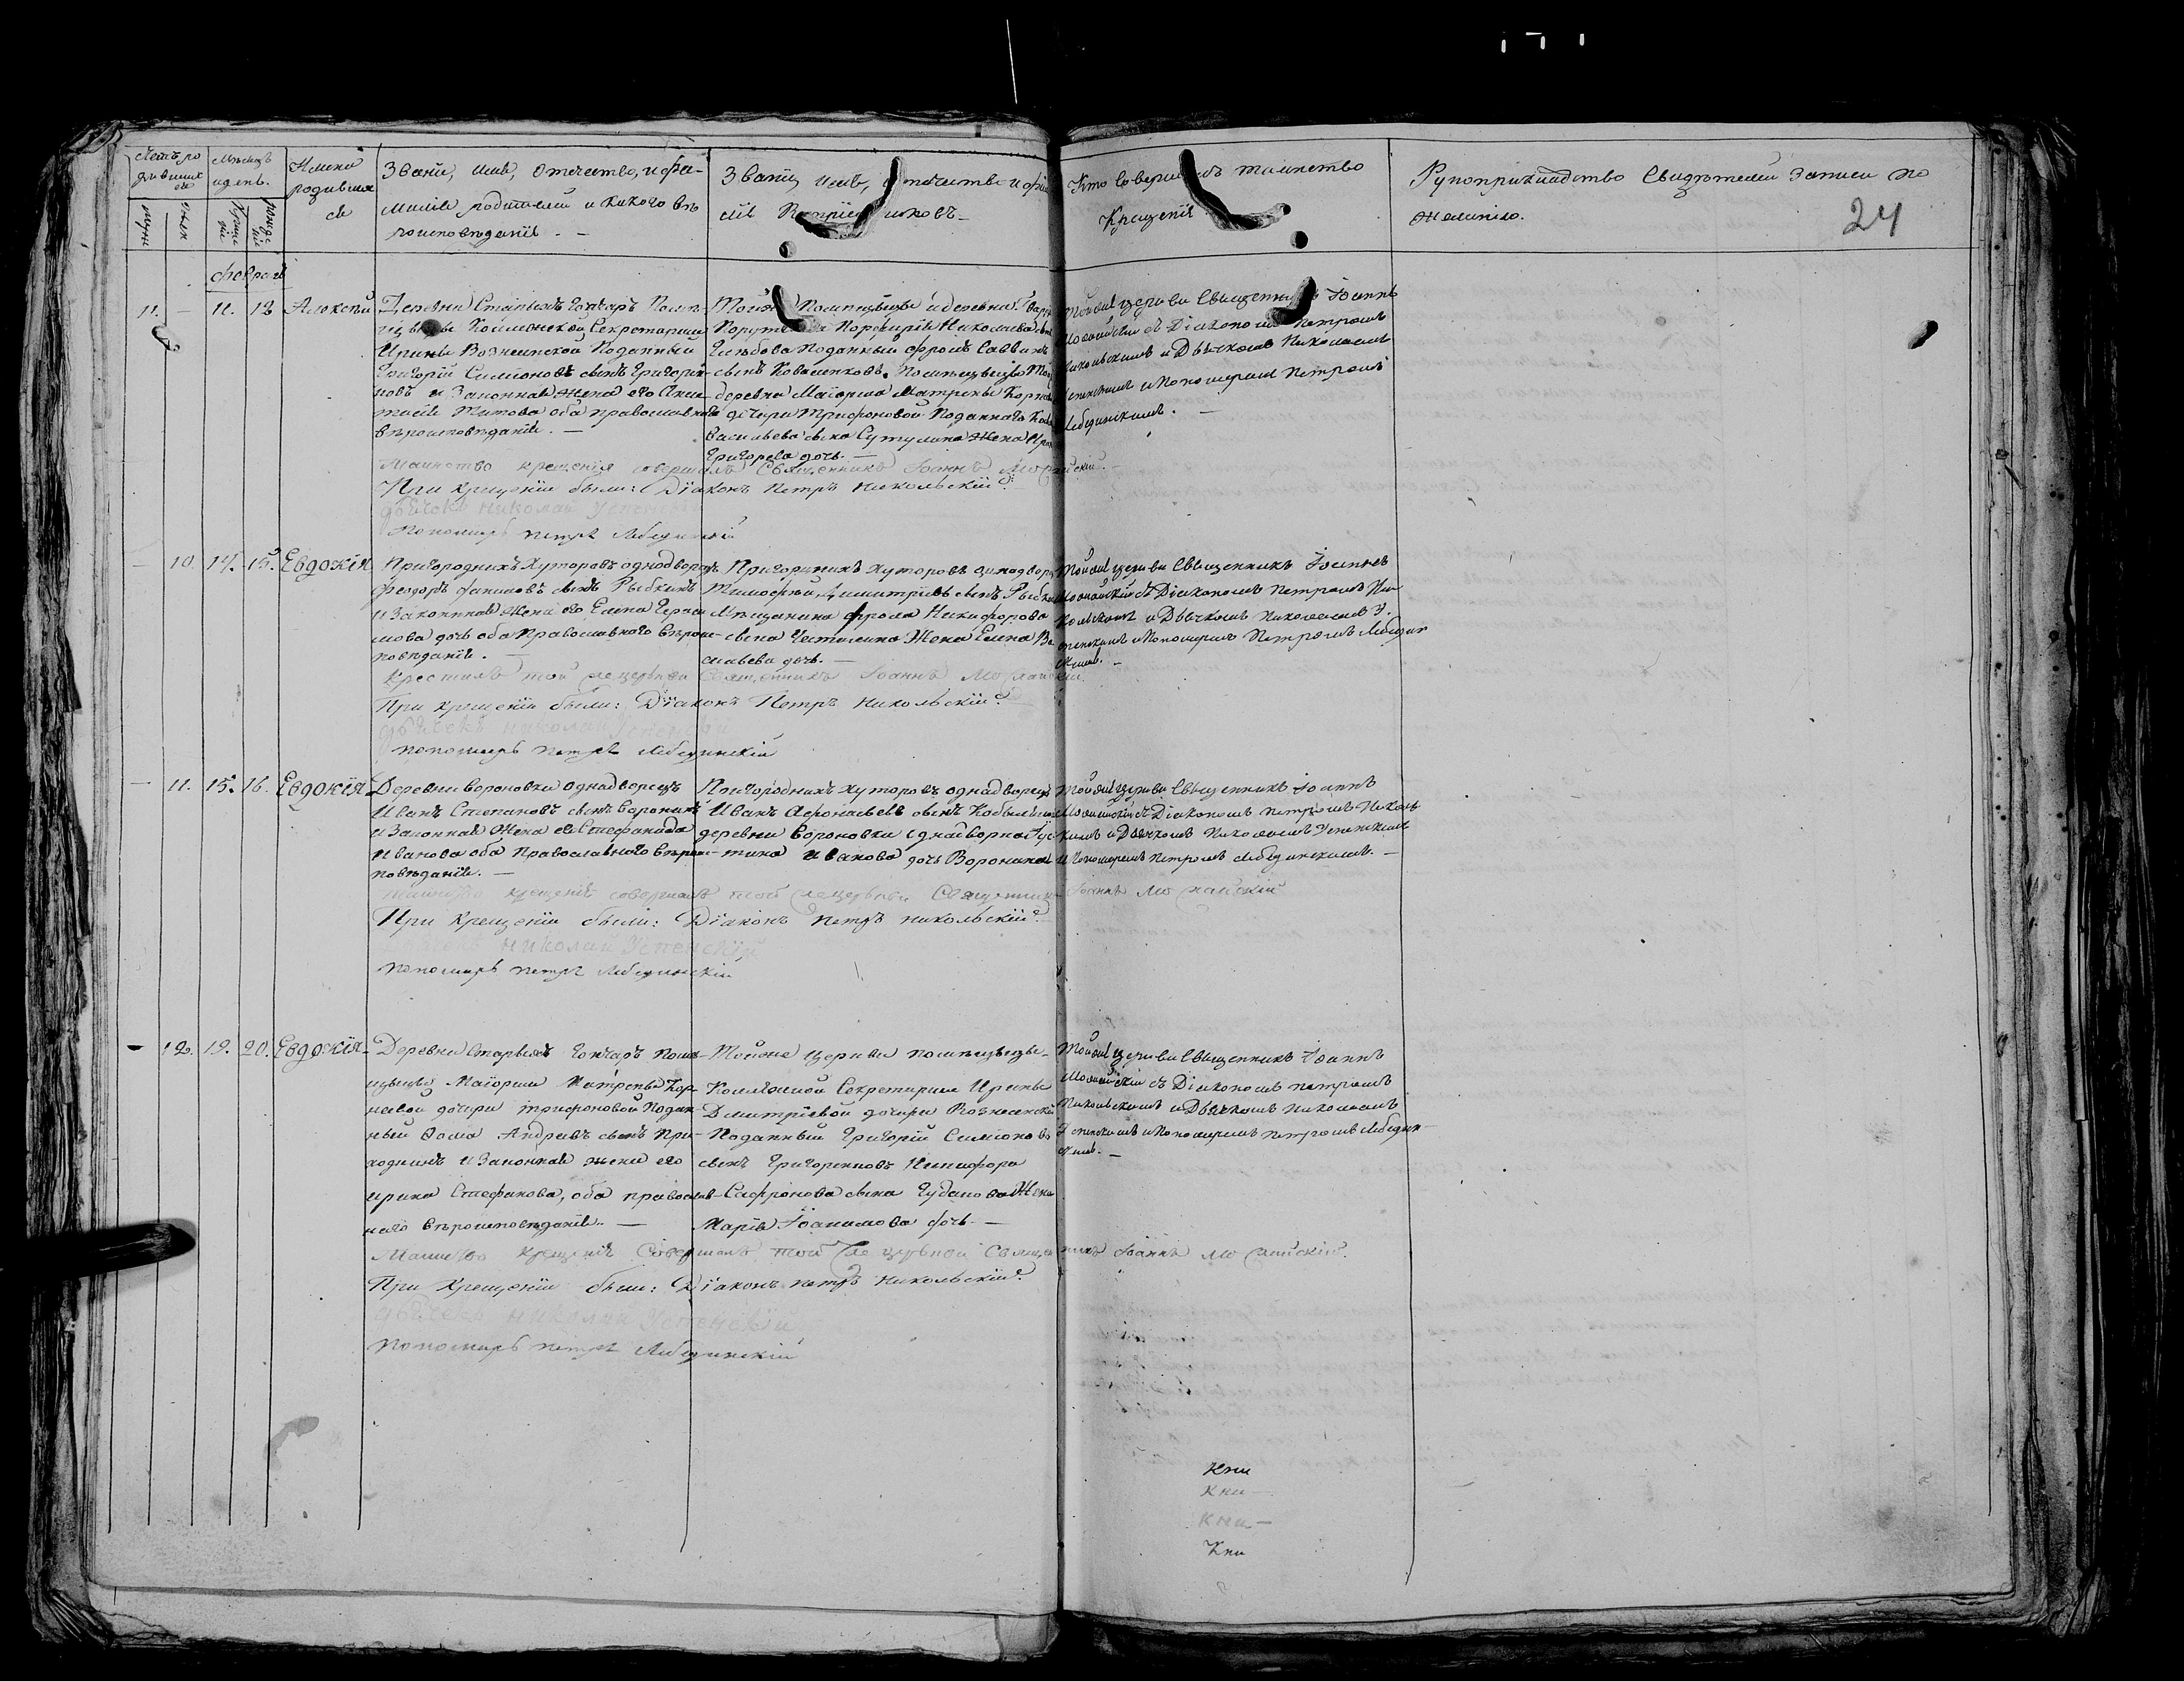 Счетъ ро
дившихся
муж
жен
Мѣсяцъ
и день.
Креще
ніе
рожде
ніе
Имена
родивших
ся
Званіе, имя, отечество, и фа-
милія родителей и какого вѣ
роисповѣданія. —
Званіе, имя, отечество и фами
лія
Кто совершалъ таинство
Крещенія
Рукоприкладство свидѣтелей записи по
желанію.
24
Февраль
11. — 11. 12 Алексѣй
Деревни Старыхъ Гончаръ Помѣ-
щицы Коллежской Секретарши
Ирины Вознесенской Подданный
Григорій Симіоновъ сынъ Григорен-
ковъ и Законная жена его
Титова оба православнаго
вѣроисповѣданія. —
Порутчика Порфирія Николаева сына
Глѣбова Подданный Фролъ Саввинъ
сынъ Коваленковъ. Помѣщицы Той
деревни Маіорши Матрены Корнѣевой
дочери Трифоновой Подданнаго
Васильева сына Сутулина Жена
Григорева дочь. —
Той же церкви Священникъ Іоаннъ
съ Діакономъ Петромъ
Никольскимъ и Дьячкомъ Николаемъ
Успенскимъ и Пономаремъ Петромъ
Лебединскимъ. —
Таинство крещенія совершалъ Священникъ Іоаннъ
При крещеніи были: Діаконъ Петръ Никольскій
дьячокъ Николай Успенскій
Пономарь Петръ Лебединскій
— 10 14. 15. Евдокія
Пригороднихъ Хуторовъ однодворецъ
Феодоръ сынъ Рыбкинъ
и Законная жена его Елена Гераси
мова дочь оба Православнаго вѣроис-
повѣданія. —
Пригороднихъ Хуторовъ однодворецъ
Тимофей Димитріевъ сынъ
Мѣщанина Фрола Никифорова
сына Жена Елена Ва
сильева дочь. —
Той же церкви Священникъ Іоаннъ
съ Діакономъ Петромъ Ни-
кольскимъ и Дьячкомъ Николаемъ У-
спенскимъ и Пономаремъ Петромъ Лебедин
скимъ. —
Крестилъ той же церкви Священникъ Іоаннъ
При крещеніи были: Діаконъ Петръ Никольскій
дьячекъ Николай Успенскій
пономарь Петръ Лебединскій
— 11. 15. 16. Евдокія
Деревни Вороновки однодворецъ
Иванъ Степановъ сынъ Воронинъ
и Законная Жена его Стефанида
Иванова оба Православнаго вѣроис-
повѣданія. —
Пригороднихъ хуторовъ однодворецъ
Иванъ Афонасьевъ сынъ
деревни Вороновки однодворка Іус-
тина Иванова дочь Воронина
Той же церкви Священникъ Іоаннъ
съ Діакономъ Петромъ Николь
скимъ и Дьячкомъ Николаемъ Успенскимъ
и Пономаремъ Петромъ Лебединскимъ. —
Таинство крещенія совершалъ той же церкви Священникъ Іоаннъ
При крещеніи были: Діаконъ Петръ Никольскій
Николай Успенскій
пономарь Петръ Лебединскій
— 12. 19. 20. Евдокія
Деревни Старыхъ Гончаръ Помѣ-
щицы Маіорши Матрены Кор-
нѣевой дочери Трифоновой Поддан-
ный Фома Андреевъ сынъ При-
ходкинъ и Законная жена его
Ирина Стефанова, оба православ-
наго вѣроисповѣданія. —
Той же церкви помѣщицы
Коллежской Секретарши Ирины
Дмитріевой дочери Вознесенской
Подданный Григорій Симіоновъ
сынъ Григоренковъ Никифора
Сафронова сына Чуданова Жена
Марія Іоакимова дочь. —
Той же церкви Священникъ Іоаннъ
съ Діакономъ Петромъ
Никольскимъ и Дьячкомъ Николаемъ
Успенскимъ и Пономаремъ Петромъ Лебедин-
скимъ. —
Таинство крещенія совершалъ той же церкви Священникъ Іоаннъ
При крещеніи были: Діаконъ Петръ Никольскій
дьячекъ Николай Успенскій
Пономарь Петръ Лебединскій
Кни
Кни —
Кни —
Кни